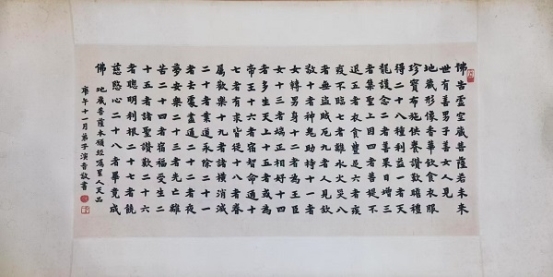 佛告虛空藏菩薩若未來
世有善男子善女人見
地藏形像香華飲食衣服
珍寶布施供養讚歎瞻禮
得二十八種利益一者天
龍護念二者善果日增三
者集聖上因四者菩提不
退五者衣食豐足六者疾
疫不臨七者離水火災八
者無盜賊厄九者人見欽
敬十者神鬼助持十一者
女轉男身十二者為王臣
女十三者端正相好十四
者多生天上十五者或為
帝王十六者宿智命通十
七者有求皆從十八者眷
屬歡樂十九者諸橫消滅
二十者業道永除二十一
者去處盡通二十二者夜
夢安樂二十三者先亡離
苦二十四者宿福受生二
十五者諸聖讚歎二十六
者聰明利根二十七者饒
慈愍心二十八者畢竟成
佛 地藏菩薩本願經囑累人天品
庚午十一月弟子演音敬書